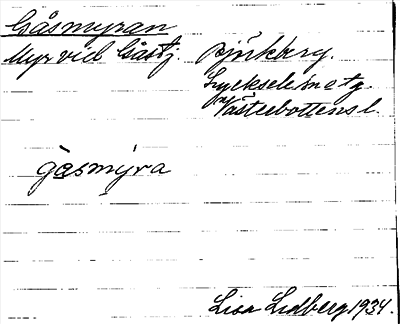 Gåsmyran
Myr vid Gåstj. Björkberg.
Lycksele
Västerbottens l.
gåsmýra
Lisa Lidberg 1934.